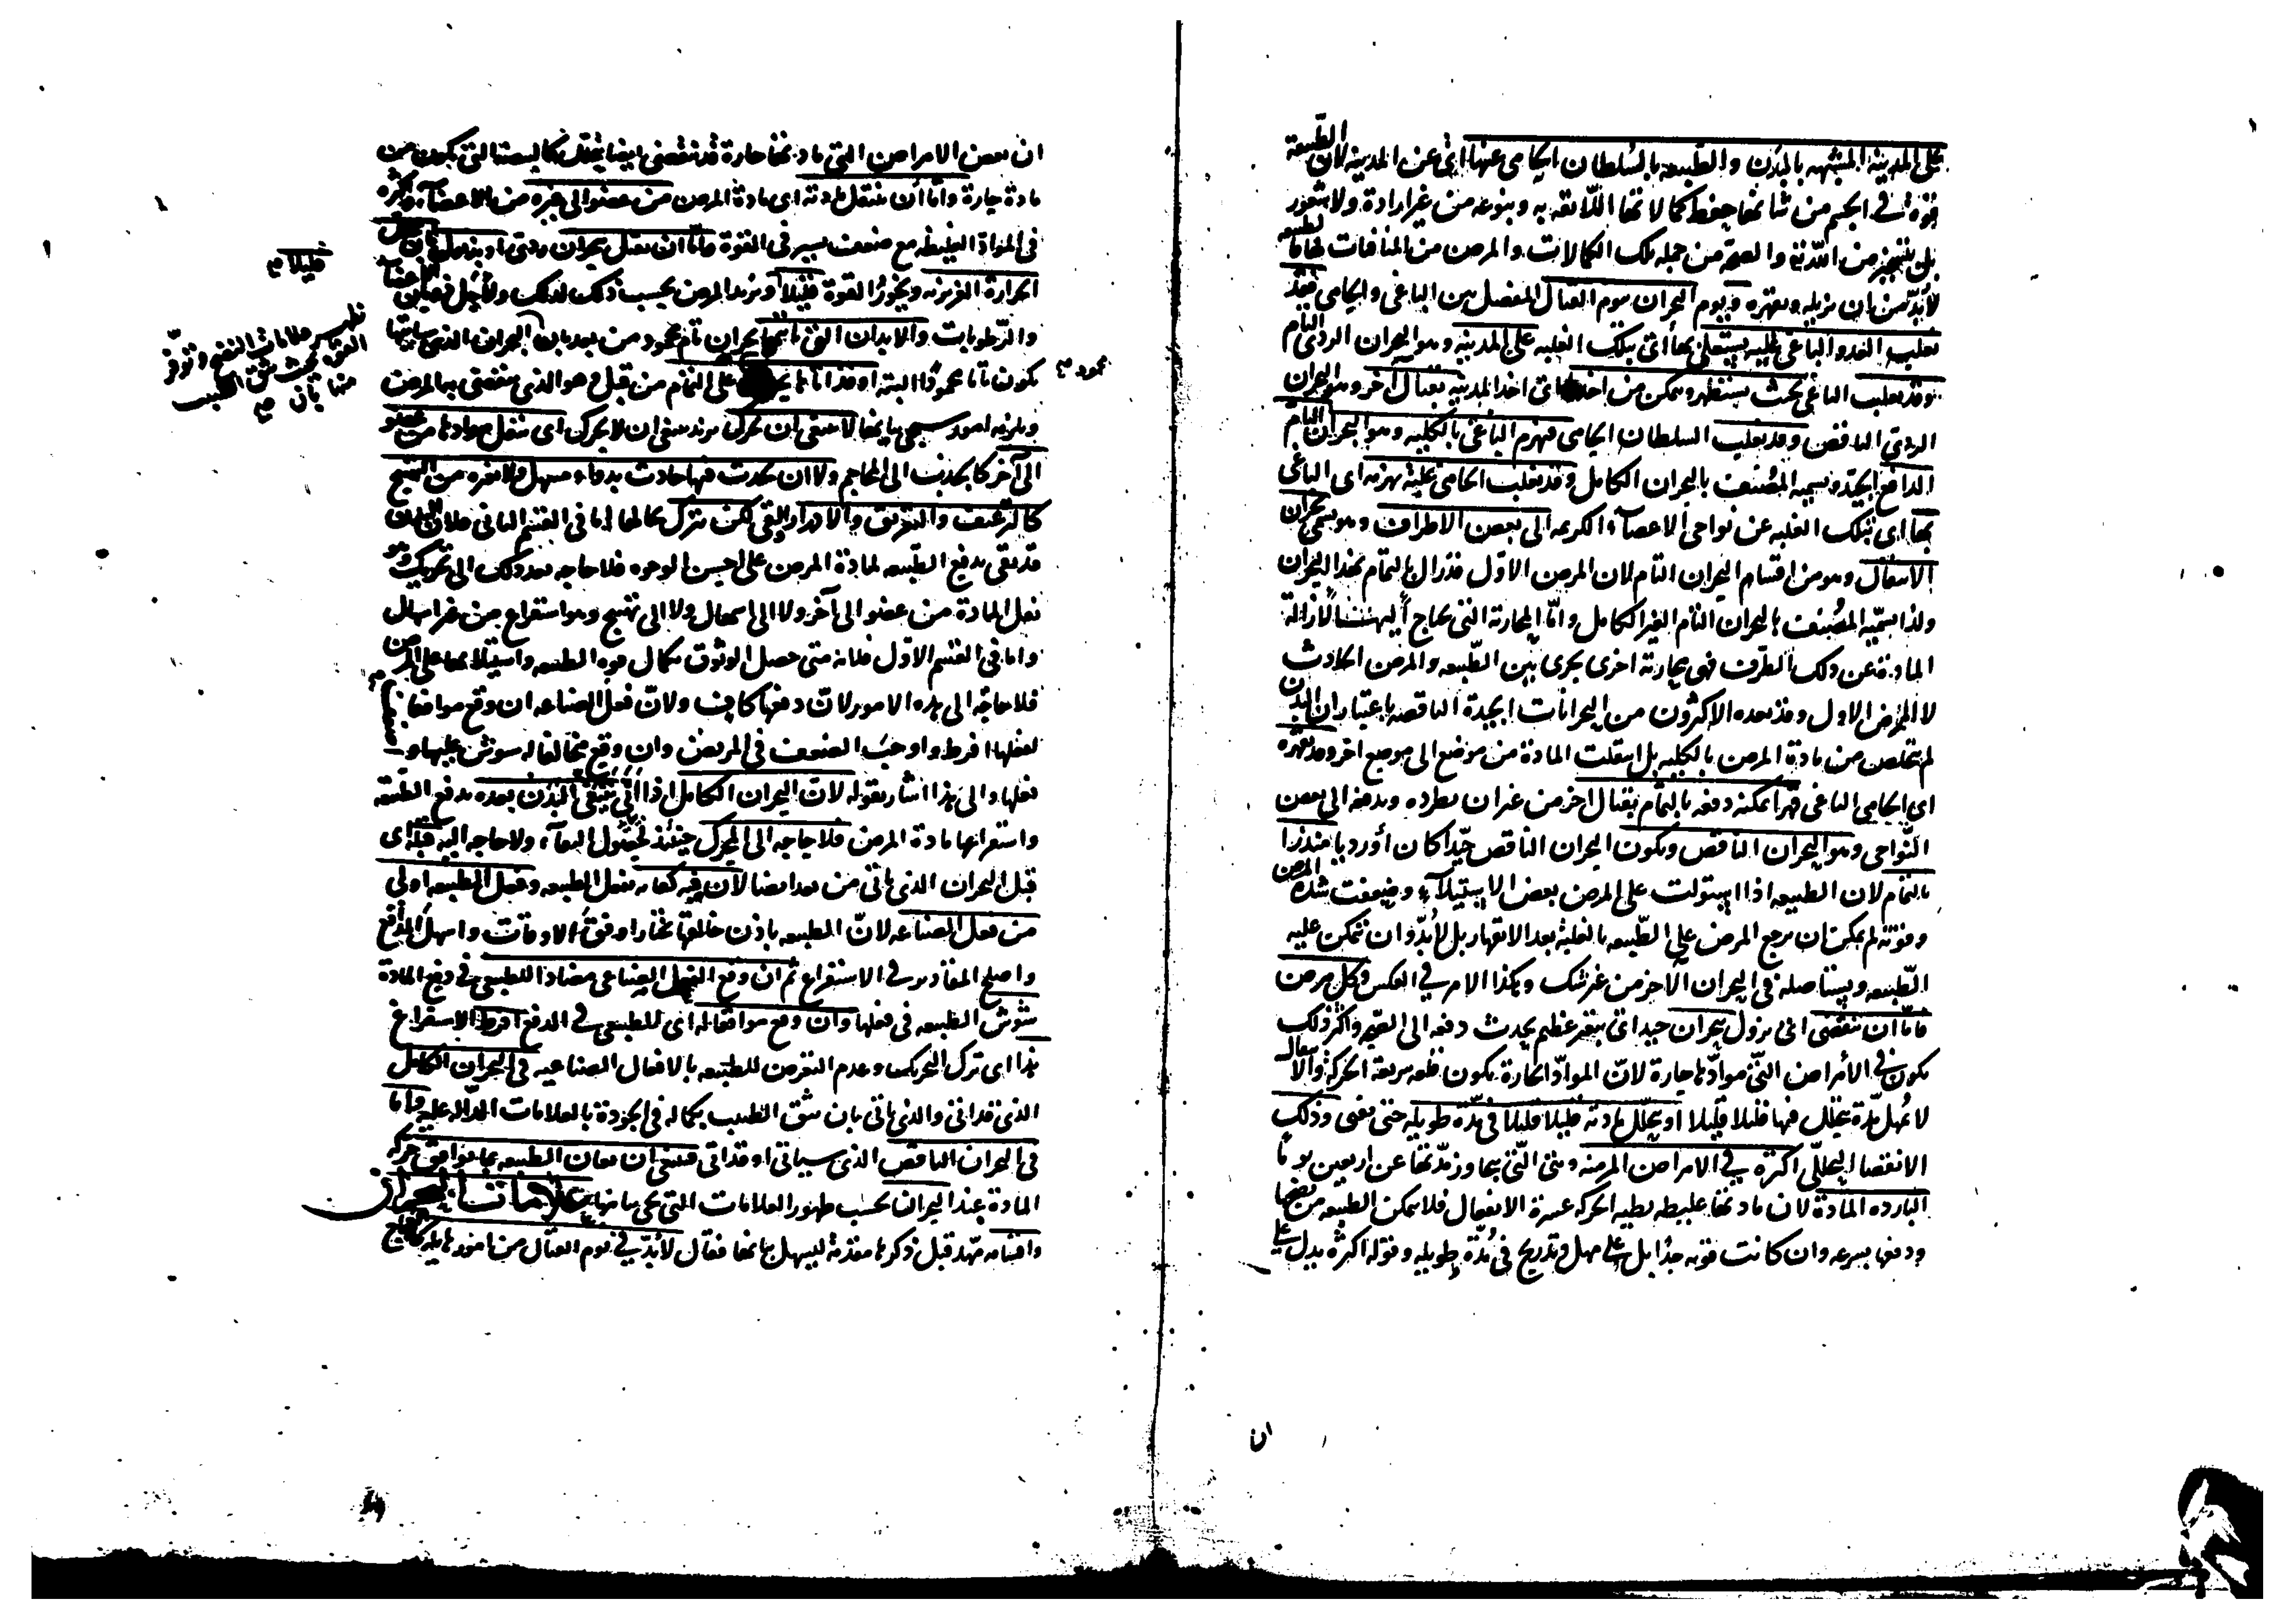 على المدينة المشبهه بالبدن والطبيعه بالسلطان الحامى عنها اى عن المدينه لان الطبيعة
قوة فى الجسم من شانها حفظ كمالاتها اللائقه به وبنوعه من غير ارادة ولا شعور
والصحة من جمله تلك الكمالات والمرض من المنافات لها فا
لا بد من ان يزيله ويقهره ويوم البحران يوم القتال المفصل بين الباغى والحامى فقد
يغلب العدو الباغى عليه فيستعلى بها اى بتلك الغلبه على المدينه وهو البحران الردى التام
وقد يغلب الباغى بحيث يستظهر ويمكن من اخذها اى اخذ المدينه بقتال آخر وهو البحران
الردى الناقص وقد يغلب السلطان الحامى فيهزم الباغى بالكليه وهو البحران التام
الدافع الجيد ويسميه المصنف بالبحران الكامل وقد يغلب الحامى غلبة يهزم اى الباغى
بها اى بتلك الغلبه عن نواحى الاعضاء الكريمه الى بعض الاطراف وهو يسمى بحران
الانتقال وهو من اقسام البحران التام لان المرض الاول قد زال بالتمام بهذا البحران
ولذا يسميه المصنف بالبحران التام الغير الكامل واما المحاربة التى يحتاج اليها لازالة
المادة عن ذلك الطرف فهى محاربة اخرى يجرى بين الطبيعه والمرض الحادث
لا المرض الاول وقد يعده الاكثرون من البحرانات الجيدة الناقصه باعتبار ان البدن
لم يتخلص من مادة المرض بالكليه بل انتقلت المادة من موضع الى موضع اخر وقد يقهره
اى الحامى الباغى قهرا يمكنه دفعه بالتمام بقتال اخر من غير ان يطرده ويدفعه الى بعض
النواحى وهو البحران الناقص ويكون البحران الناقص جيدا كان او رديا منذرا
بالتمام لان الطبيعه اذا استولت على المرض بعض الاستيلاء وضعفت شدة المرض
وقوته لم يمكن ان يرجع المرض على الطبيعه بالغلبة بعد الانقهار بل لا بد وان تتمكن عليه
الطبيعه ويستاصله فى البحران الاخر من غير شك وهكذا الامر فى العكس وكل مرض
فاما ان ينقضى اى يزول ببحران جيد اى بتغير عظيم يحدث دفعه الى الصحة واكثر ذلك
يكون فى الأمراض التى موادها حارة لان المواد الحارة يكون سريعة الحركة والانتقال
لا تمهل مدة يتحلل فيها قليلا قليلا او يتحلل مادته قليلا قليلا فى مدة طويله حتى يفنى وذلك
الانقضا التحللى اكثره فى الامراض المزمنه وهى التى يتجاوز مدتها عن اربعين يوما
البارده المادة لان مادتها غليظه بطيه الحركه عسرة الانفعال فلا يمكن الطبيعه من نضجها
ودفعها بسرعه وان كانت قويه جدا بل على مهل وتدريج فى مدة طويله وقوله اكثره يدل على
ان
ان بعض الامراض التى مادتها حارة قد تنقضى ايضا بتحلل كالبسيطة التى يكون من
مادة حارة واما أن ينتقل مادته اى مادة المرض من عضو الى غيره من الاعضاء واكثره
فى المواد الغليظه مع ضعف يسير فى القوة واما ان يقتل ببحران ردى او بذبول بان يتحلل
الحرارة الغريزيه ويخور القوة قليلا ويزيد المرض بحسب ذلك كذلك
قليلا صح
والرطوبات والابدان التى ياتيها بحران تام محمود من بعد بان البحران الذى ياتيها
محمود صح
يكون تاما محمودا البته او قد اتاها على التمام من قبل وهو الذى ينقضى به المرض
ظهر علامات النضج وتوفر
القوة بحيث يثق الطبيب
منها بان صح
ويلزمه امور سيجى بيانها لا ينبغى ان تحرك يريد ينبغى ان لا يحرك اى ينقل موادها من عضو
الى آخر كما يجذب الى المحاجم ولا ان يحدث فيها حادث بدواء مسهل ولا غيره من التهيج
كالترعيف والتعريق والادرار والقى لكن تترك بحالها اما فى القسم الثانى فلان البدن
قد نقى بدفع الطبيعه لمادة المرض على احسن الوجوه فلا حاجه بعد ذلك الى تحريك وهو
نقل المادة من عضو الى آخر ولا الى اسهال ولا الى تهيج وهو استفراغ من غير اسهال
واما فى القسم الاول فلانه متى حصل الوثوق بكمال قوه الطبيعه واستيلائها على المرض
فلا حاجة الى هذه الامور لان دفعها كاف ولان فعل الصناعه ان وقع موافقا
لفعلها افرط واوجب الضعف فى المريض وان وقع مخالفا له شوش عليها و
فعلها والى هذا اشار بقوله لان البحران الكامل اذا اتى ينقى البدن بعده بدفع الطبيعه
واستفراغها مادة المرض فلا حاجه الى المحرك حينئذ لحصول النقاء ولا حاجه اليه قبله اى
قبل البحران الذى ياتى من بعد ايضا لان فيه كفايه بفعل الطبيعه وفعل الطبيعه اولى
من فعل الصناعه لان الطبيعه باذن خالقها تختار اوفق الاوقات واسهل المدافع
واصلح المقادير فى الاستفراغ ثم ان وقع الفعل الصناعى مضادا للطبيعى فى دفع المادة
شوش الطبيعه فى فعلها وان وقع موافقا له اى للطبيعى فى الدفع افرط الاستفراغ
هذا اى ترك التحريك وعدم التعرض للطبيعه بالافعال الصناعيه فى البحران الكامل
الذى قد اتى والذى ياتى بان يثق الطبيب بكماله فى الجودة بالعلامات الداله عليه واما
فى البحران الناقص الذى سياتى او قد اتى فينبغى ان تعان الطبيعه بما يوافق حركه
المادة عند البحران بحسب ظهور العلامات التى يجى بيانها علامات البحران
واقسامه مهد قبل ذكرها مقدمة ليسهل بيانها فقال لا بد فى يوم القتال من امور هايله